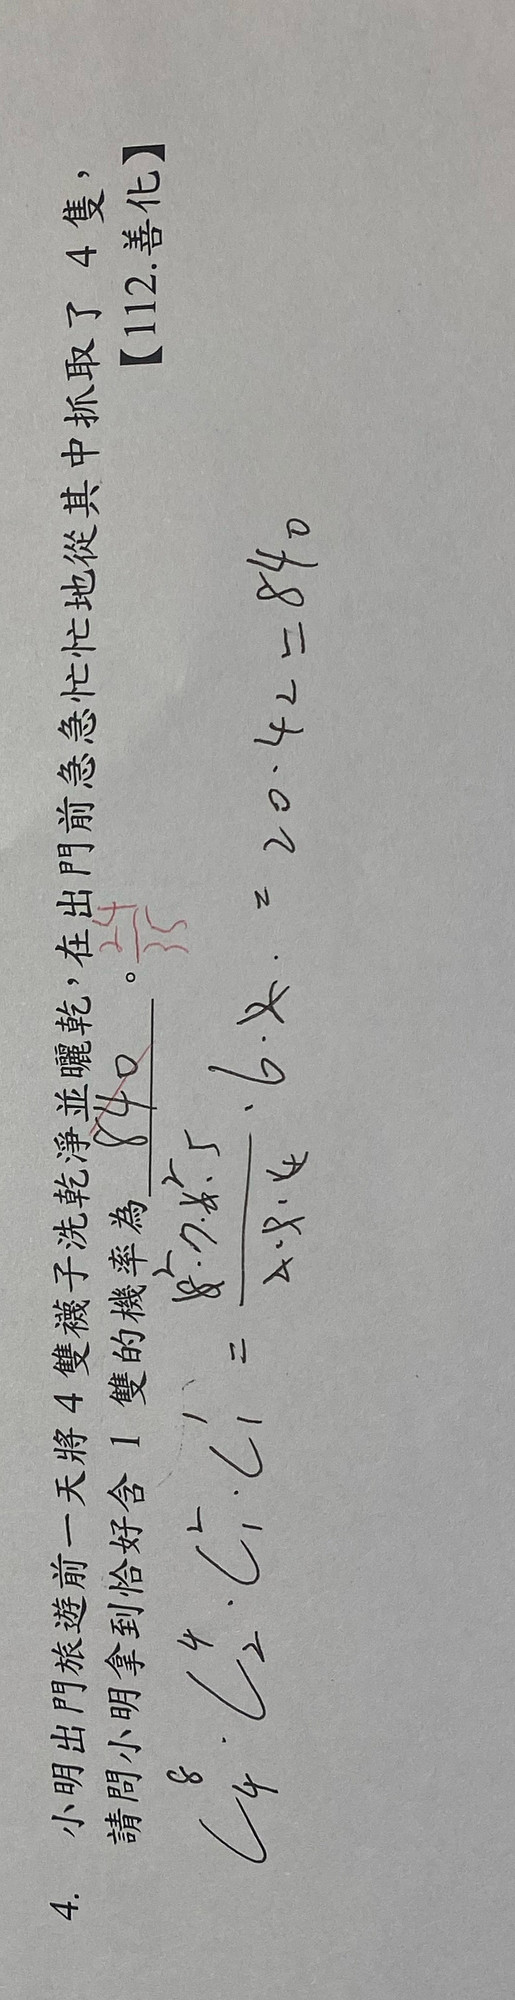 4. 小明出門旅遊前一天將 4 雙襪子洗乾淨並曬乾，在出門前急急忙忙地從其中抓取了 4 隻，
請問小明拿到恰好含 1 雙的機率為 840 。 24/35 【112.善化】
C⁸₄ · C⁴₂ · C²₁ · C¹₁ = 8·7·6·5 / 4·3·2 · 6 · 2 · = 20·42 = 840